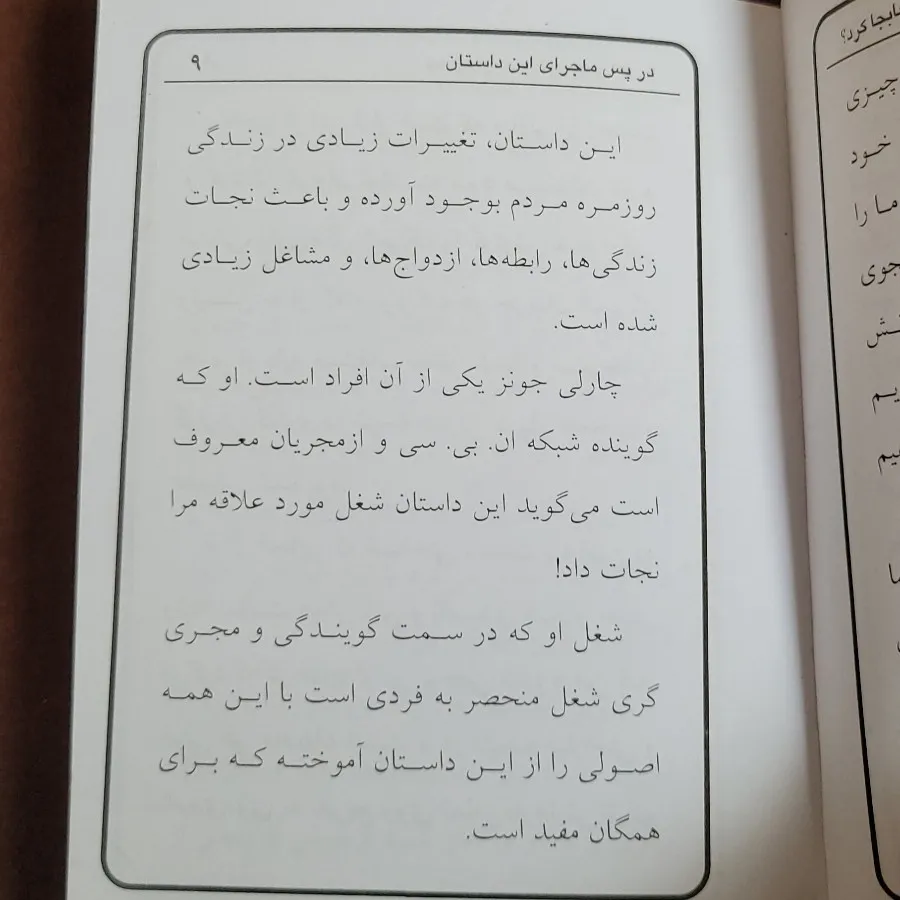 در پس ماجرای این داستان ۹
این داستان، تغییرات زیادی در زندگی
روزمره مردم بوجود آورده و باعث نجات
زندگی‌ها، رابطه‌ها، ازدواج‌ها، و مشاغل زیادی
شده است.
چارلی جونز یکی از آن افراد است. او که
گوینده شبکه ان. بی. سی و ازمجریان معروف
است می‌گوید این داستان شغل مورد علاقه مرا
نجات داد!
شغل او که در سمت گویندگی و مجری
گری شغل منحصر به فردی است با این همه
اصولی را از این داستان آموخته که برای
همگان مفید است.
جابجا کرد؟
چیزی
خود
ما را
جوی